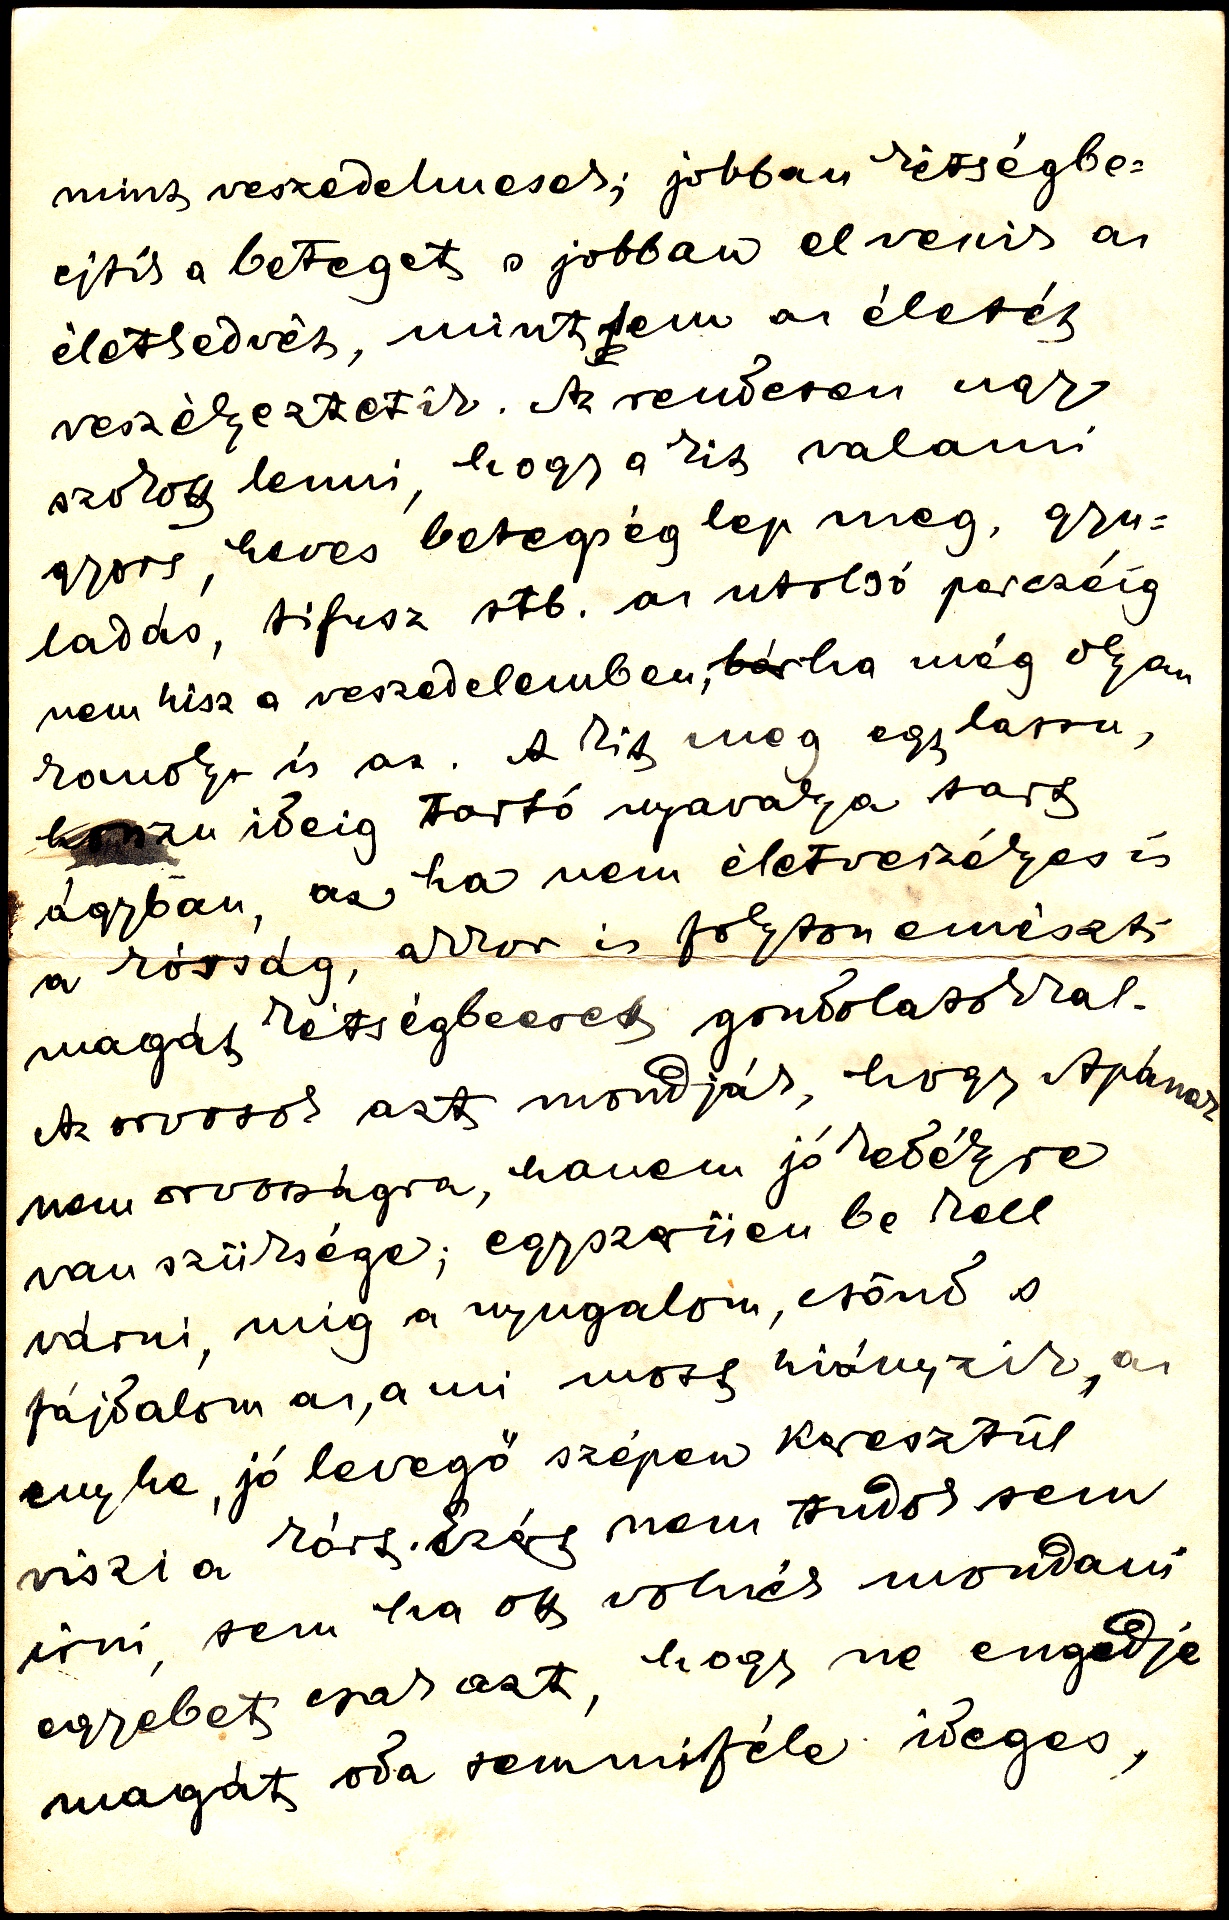 mint veszedelmesek; jobban kétségbe=
ejtik a beteget s jobban elveszik az
életkedvét, mintsem az életét
veszélyeztetik. Az rendesen ugy
szokott lenni, hogy a kit valami
gyors, heves betegség lep meg, gyu=
ladás, tifusz stb. az utolsó perczéig
nem hisz a veszedelemben, bárha még olyan
komoly is az. A kit meg egy lassu,
hosszu ideig tartó nyavalya tart
ágyban, az ha nem életveszélyes is
a kórság, akkor is folyton emészti
magát kétségbeesett gondolatokkal.
Az orvosok azt mondják, hogy Apának
nem orvosságra, hanem jó kedélyre
van szüksége; egyszerüen be kell
várni, mig a nyugalom, csönd s
fájdalom az, ami most hiányzik, az
enyhe, jó levegő szépen keresztül
viszi a kórt. Ezért nem tudok sem
irni, sem ha ott volnék mondani
egyebet csak azt, hogy ne engedje
magát oda semmiféle ideges,